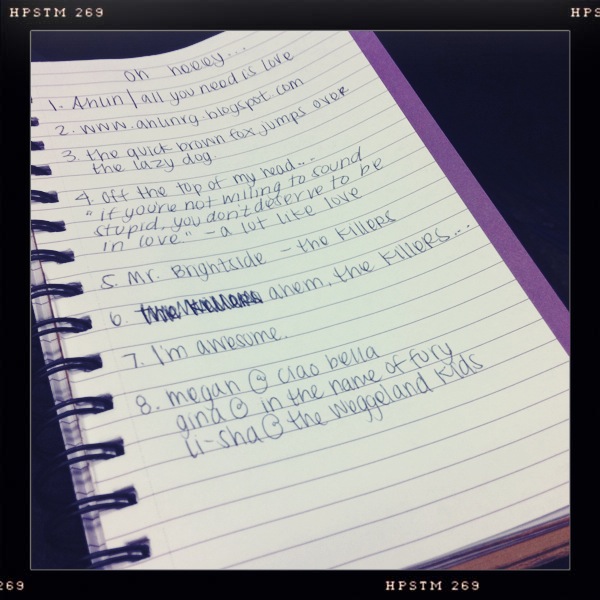 HPSTM 269
HPS
oh heeey...
1. Ahlin | all you need is love
2. www.ahlinrg.blogspot.com
3. the quick brown fox jumps over
the lazy dog.
4. off the top of my head...
"if you're not willing to sound
stupid, you don't deserve to be
in love" - a lot like love
5. Mr. Brightside - the Killers
6. ahem, the Killers...
7. I'm awesome.
8. megan @ ciao bella
gina @ in the name of fury
li-sha @ the weggeland kids
269
HPSTM 269